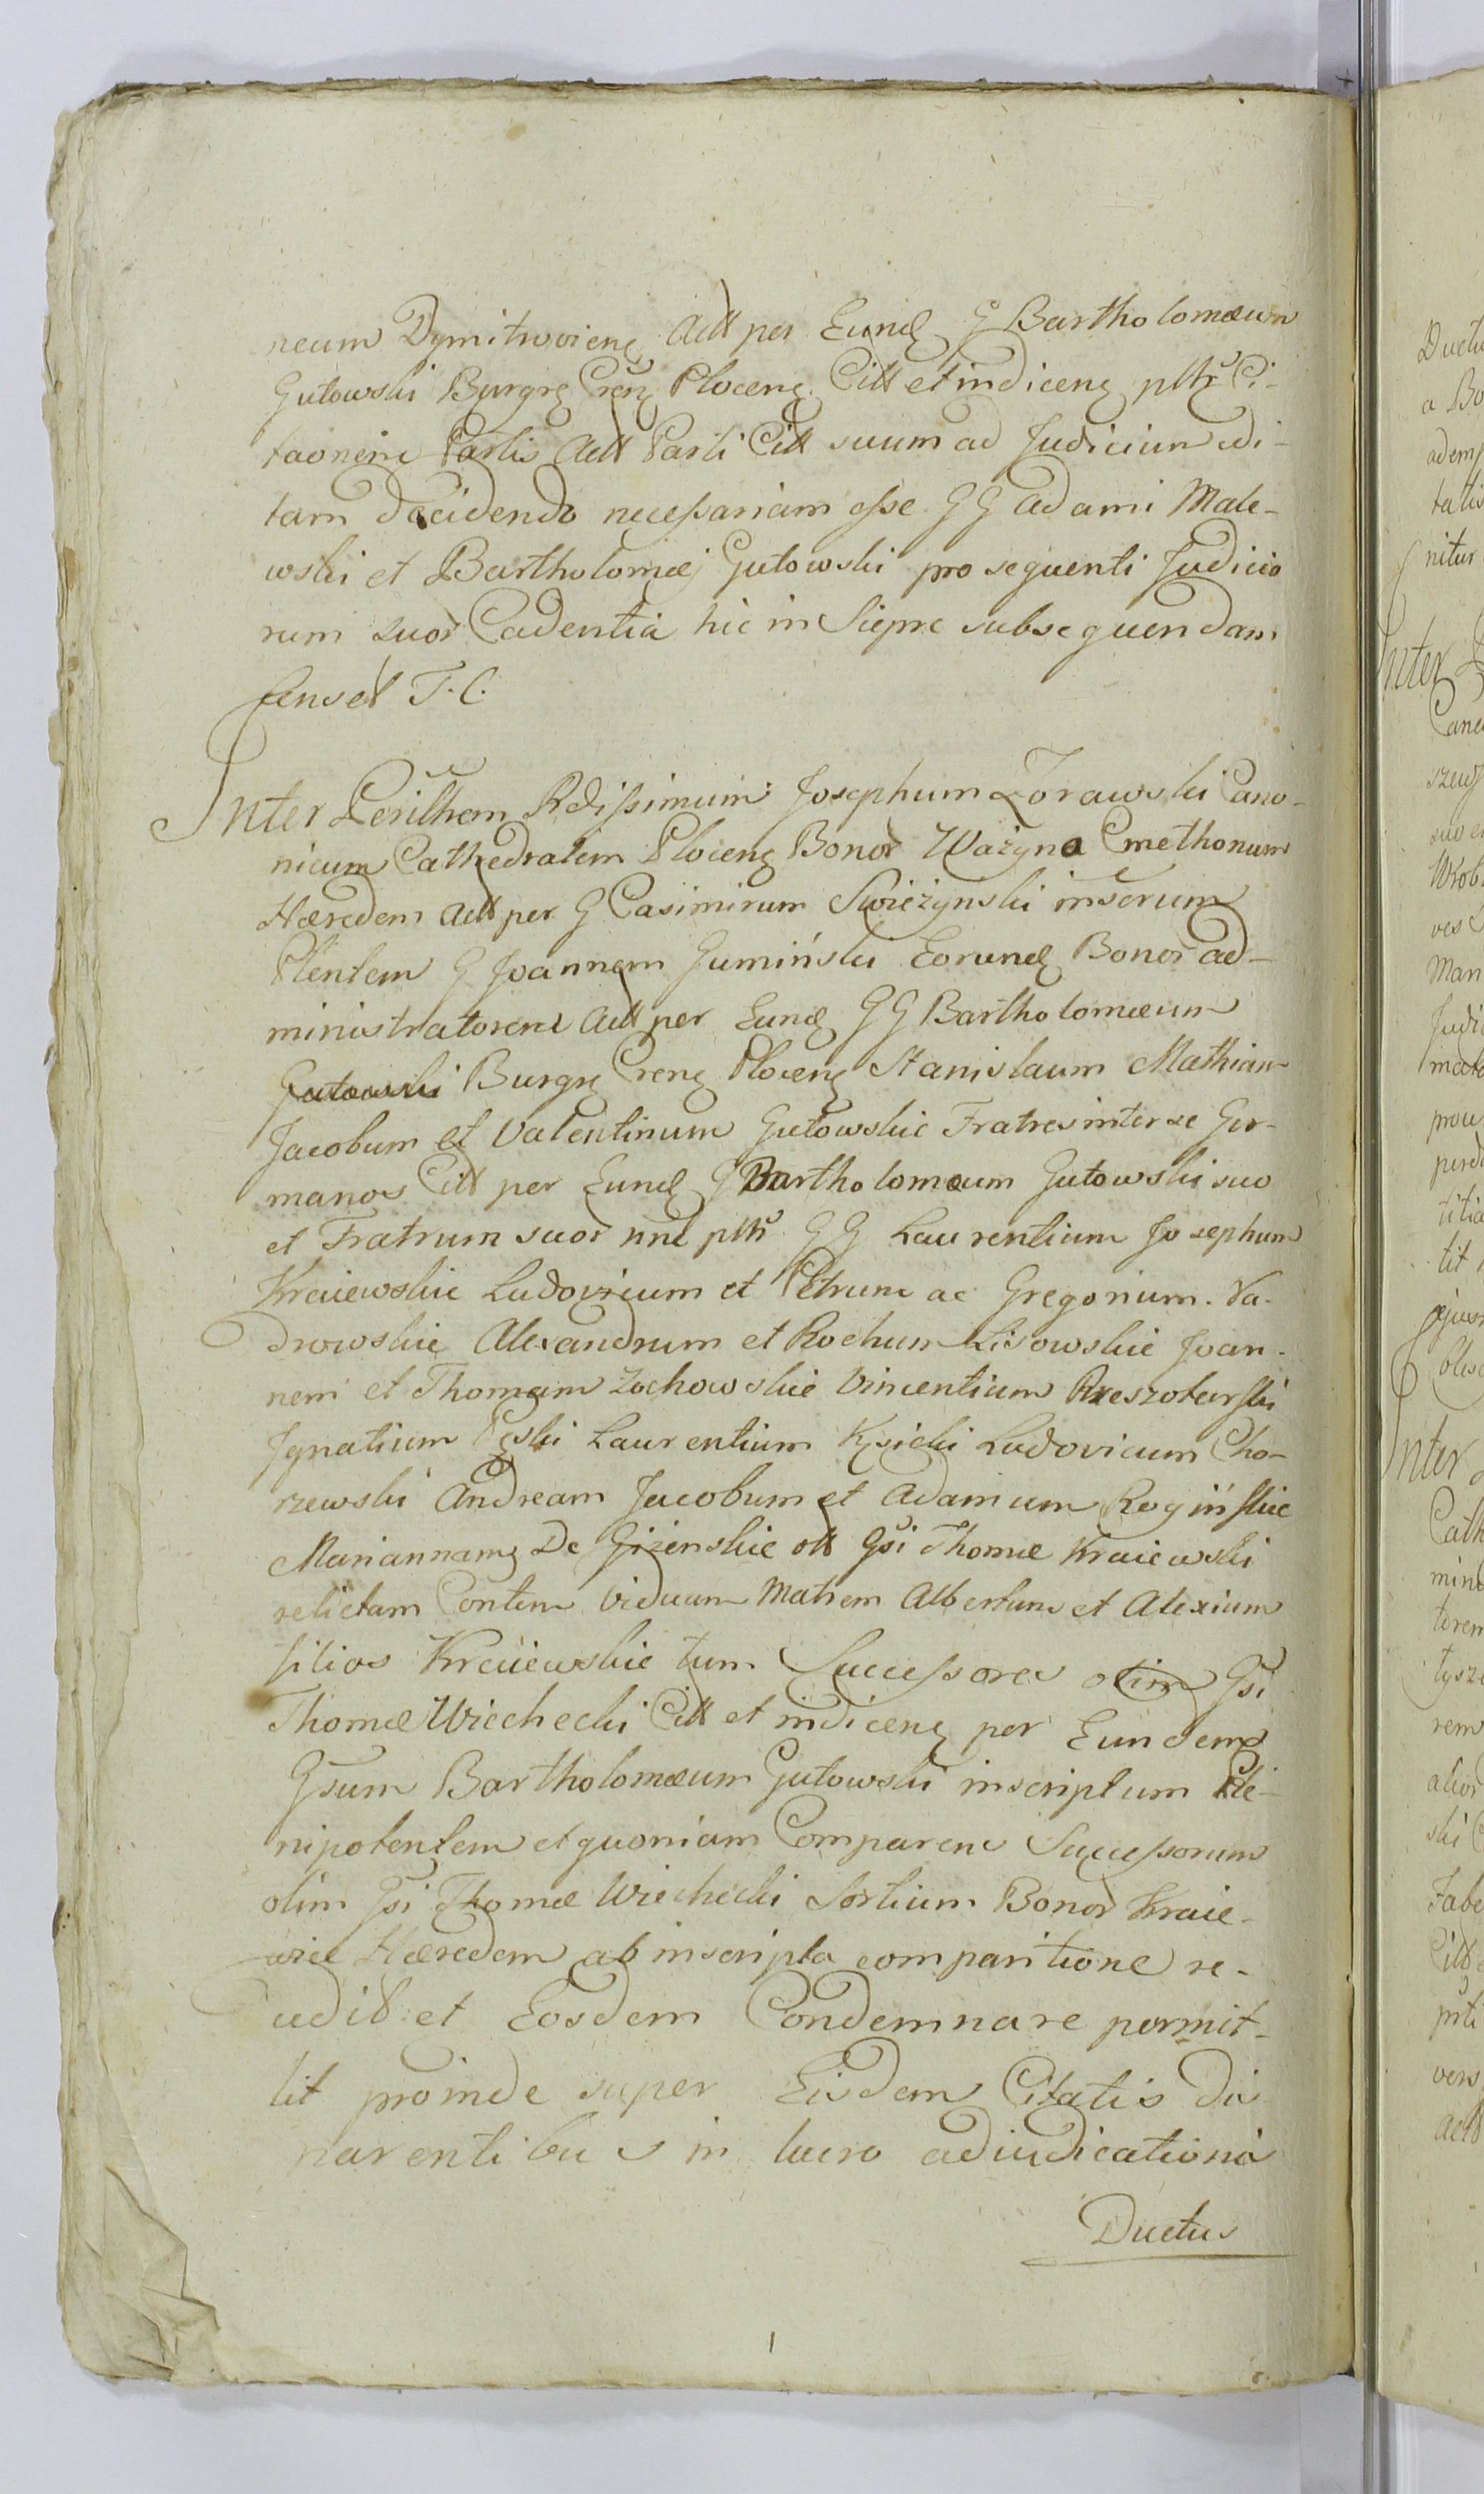 neum Dymitrovieng Actt per Eund G Bartholomæum
Gutowski Burgrg Creng Ploceng Citt et indiceng ptttr Ci-
taonem Partis Actt Parti Citt suum ad Judicium edi-
tam decidendo necessariam esse GG Adami Male-
wski et Bartholomæj Gutowski pro sequenti Judicio
rum suor Cadentia hic in Siepre subsequendam
Censet T. C.
Inter Perilhem Rdissimum Josephum Zorawski Cano-
nicum Cathedralem Ploceng Bonor Ważyna Cmethonum
Hæredem Actt per G Casimirum Swieżynski inserum
Pltentem G Joannem Jumiński Eorund Bonor ad-
ministratorem Actt per Eund GG Bartholomæum
Gutowski Burgrg Creng Ploceng Stanislaum Mathiam
Jacobum et Valentinum Gutowskie Fratres inter se Ger-
manos Citt per Eund G Bartholomæum Gutowski suo
et Fratrum suor nne ptttr GG Laurentium Josephum
Kraiewskie Ludovicum et Petrum ac Gregorium Na-
drowskie Alexandrum et Rochum Lisowskie Joan-
nem et Thomam Zochowskie Vincentium Rzeszotarski
Ignatium Laurentium Kęsicki Ludovicum Cho-
rzewski Andream Jacobum et Adamum Rogińskie
Mariannam De Giżenskie ott Gsi Thomæ Kraiewski
relictam Contem Viduam Matrem Albertum et Alexium
filios Kraiewskie tum Successores olim Gsi
Thomæ Wiechecki Citt et indiceng per Eundem
Gsum Bartholomæum Gutowski inscriptum Ple-
nipotentem et quoniam Comparens Successorum
olim Gsi Thomæ Wiechecki Sortium Bonor Kraie-
wice Hæredem ab inscripta comparitione re-
cedit et Eosdem Condemnare permit-
tit proinde super Eisdem Citatis
parentibus in lucro adiudicationis
Ductus
Ductu
a Bo
adem
talis
nitur
Inter
Cane
szews
suo e
Wrob
ves
Man
Judi
prou
perd
titia
tit
ejus
Inter
Cath
mino
torem
tysz
rem
alior
ski
Fabe
Citt
prti
vers
Actt